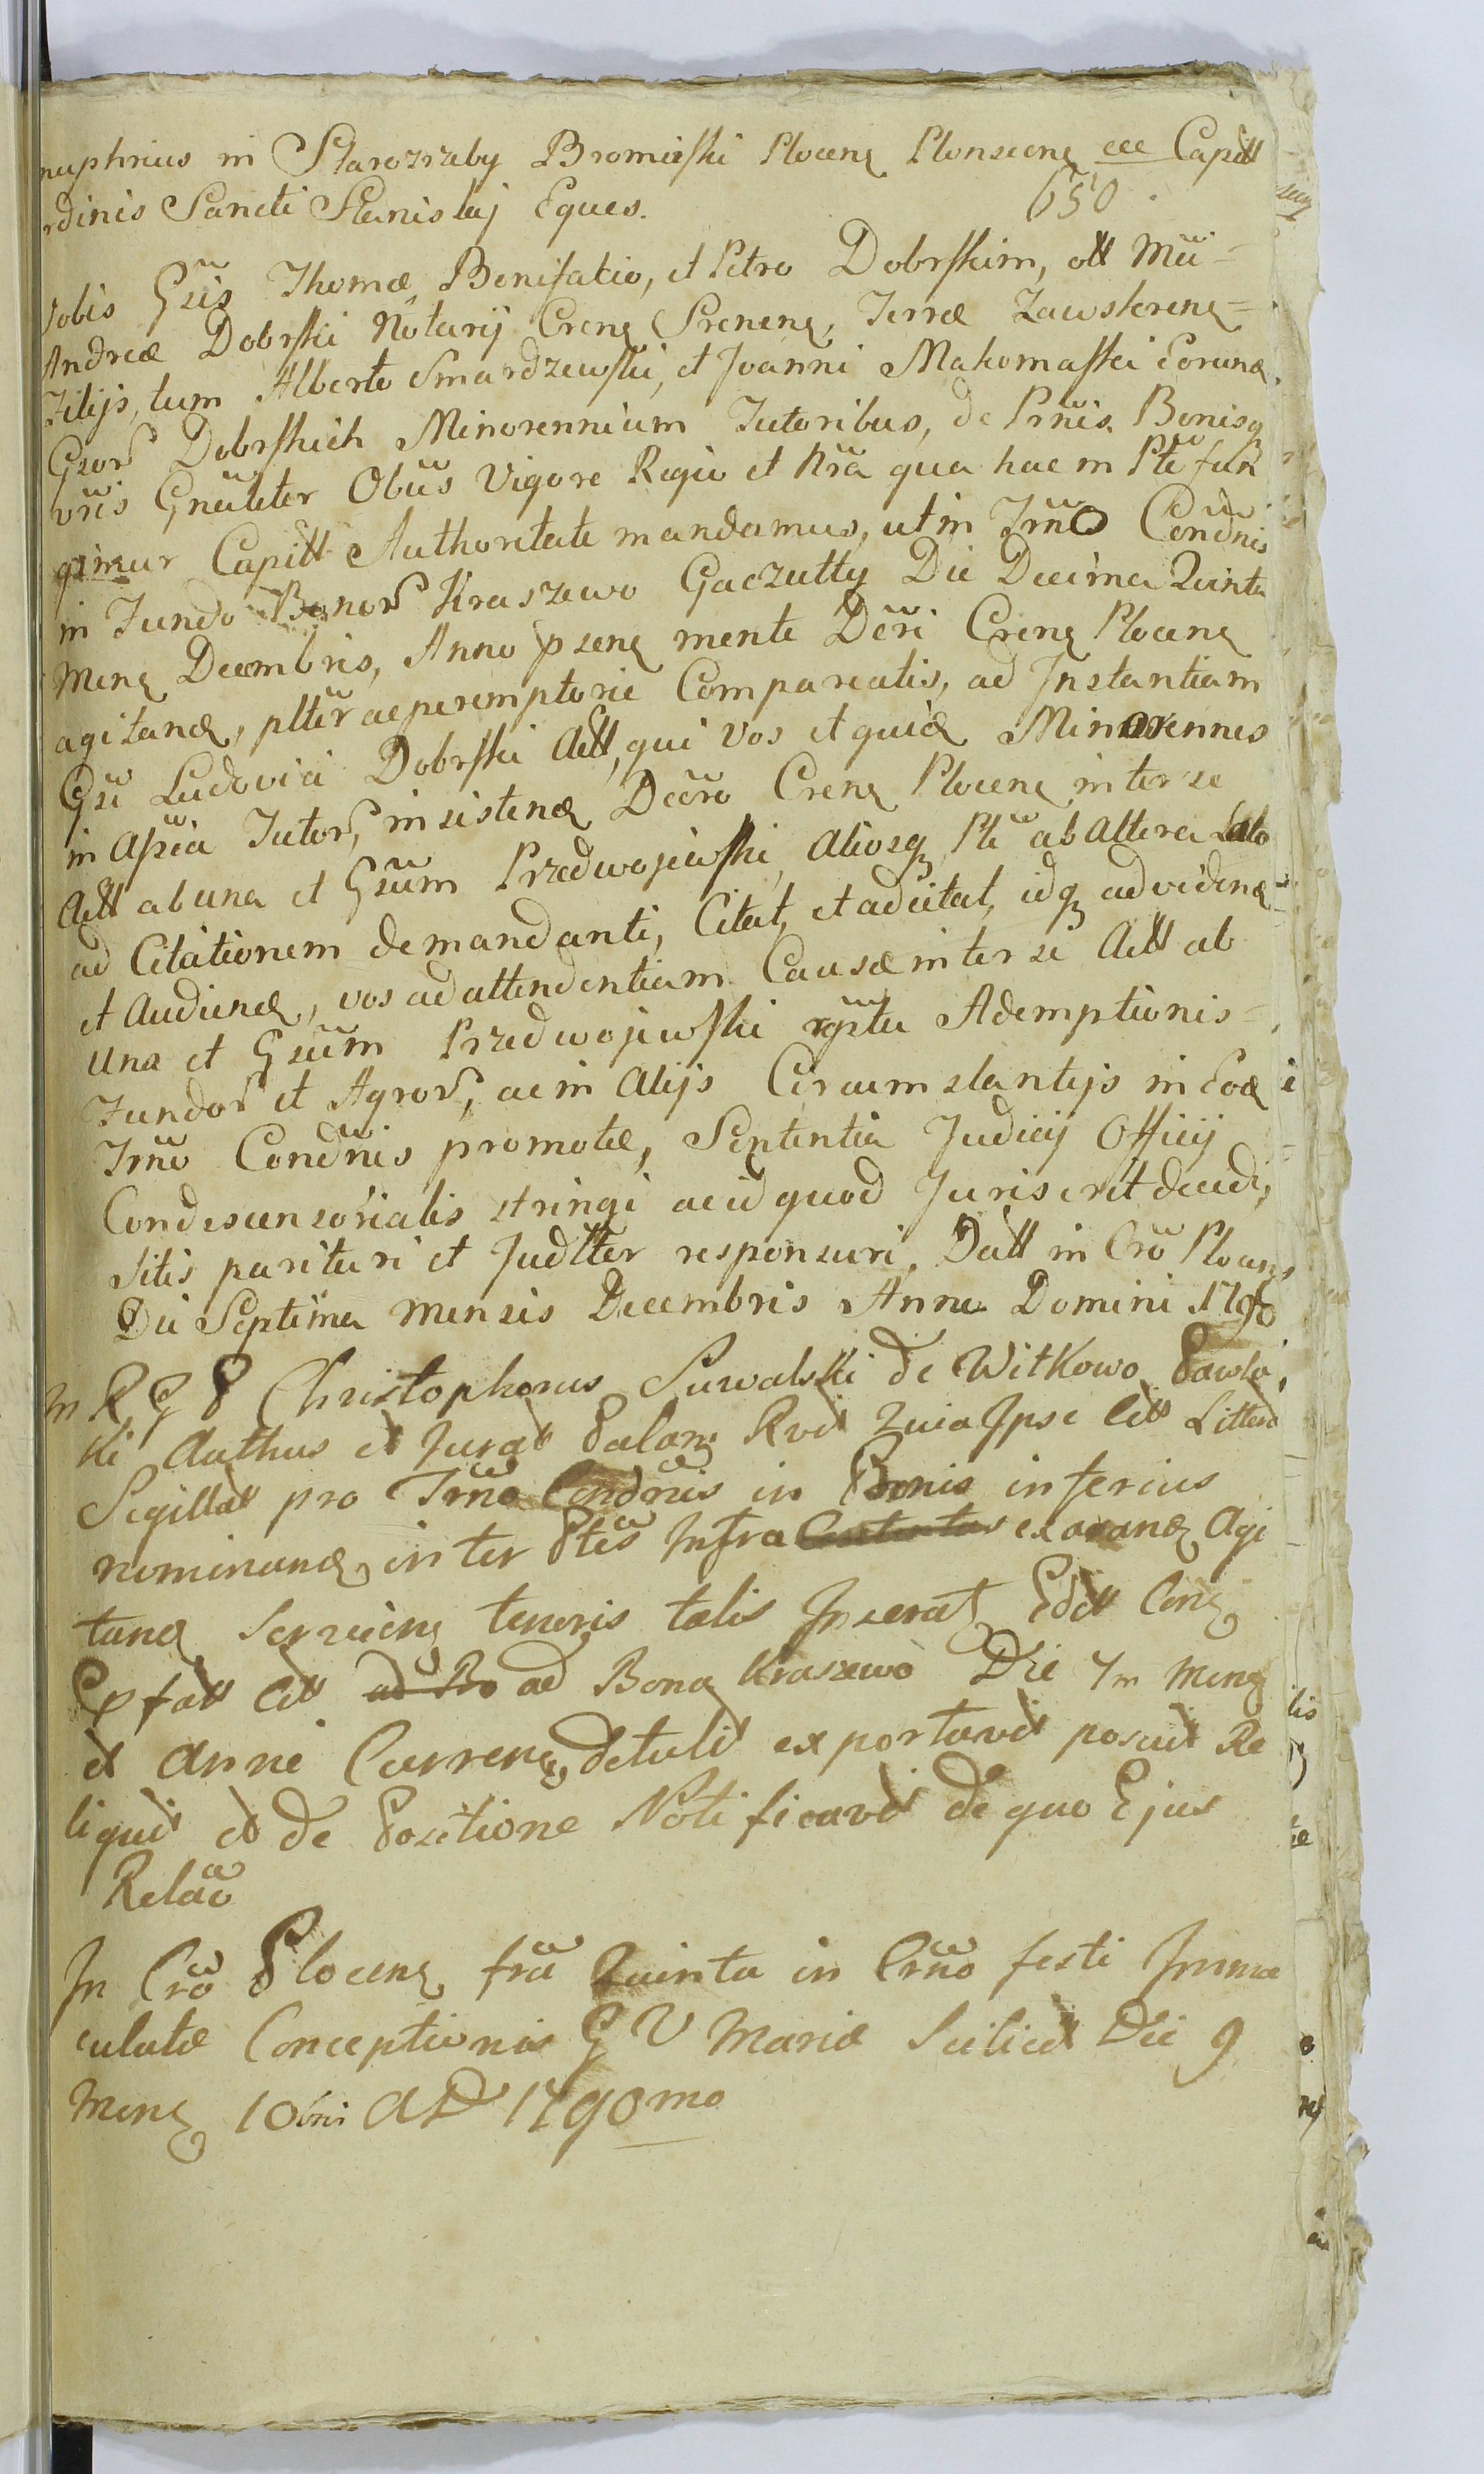 nuphrius in Starozrzeby Bromirski Plocens Plonscens etc Capitt
rdinis Sancti Stanislaj Eques.
650.
Vobis Gsis Thomæ, Bonifatio, et Petro Dobrskim, ott Mci
Andreæ Dobrski Notarij Crens Srenens, Terræ Zawskrens
Filijs, tum Alberto Smardzewski, et Joanni Makomaski Eorund
Gsor Dobrskich Minorennium Tutoribus, de Prnis Bonisq
vris Gnaliter Obus Vigore Regia et Nra qua hac in Pte fun
gimur Capitt Authoritate mandamus, ut in Trno Condnis
in Fundo Bonor Kraszewo Gaczulty Die Decima Quinta
Mens Decembris, Anno psens mente Decri Crens Plocens
agitand, pltter ac peremptorie Compareatis, ad Instantiam
Gsi Ludovici Dobrski Actt, qui vos et quid Minorennes
in Assia Tutor, insistend Decro Crens Plocens inter se
Actt ab una et Gsum Przedwojewski, Aliosq Pte ab Altera Lato
ad Citationem demandanti, Citat, et adcitat, idq ad vidend
et Audiend, vos ad attendentiam Causæ inter se Actt ab
una et Gsum Przedwojewski rptu Ademptionis
Fundor et Agror, ac in Alijs Circumstantijs in Eod
Trno Condnis promotæ, Sententia Judicij Officij
Condescensorialis stringi ac id quod Juris erit decidi,
Sitis parituri et Judtter responsuri. Datt in Cro Plocens
Die Septima Mensis Decembris Anno Domini 1790
M R G P Christophorus Suwalski de Witkowo Pawlo
ki Authus et Jurat Palam Rvit Quia Ipse Citt Litterd
Sigillat pro Trno Condnis in Bonis inferius
nominand, inter Ptes Infra exarand Agi
tand Serviens tenoris talis Inserat Edit Cong
Exfatt Citt ad Bo ad Bona Kraszewo Die 7m Mens
et Anni Currens, detulit exportavit posuit Re
liquit et de Positione Notificavit de quo Ejus
Relao
In Cro Plocens fria Quinta in Crno festi Imma
culatæ Conceptionis G V Mariæ Scilicet Die 9
Mens 10bris AD 1790mo